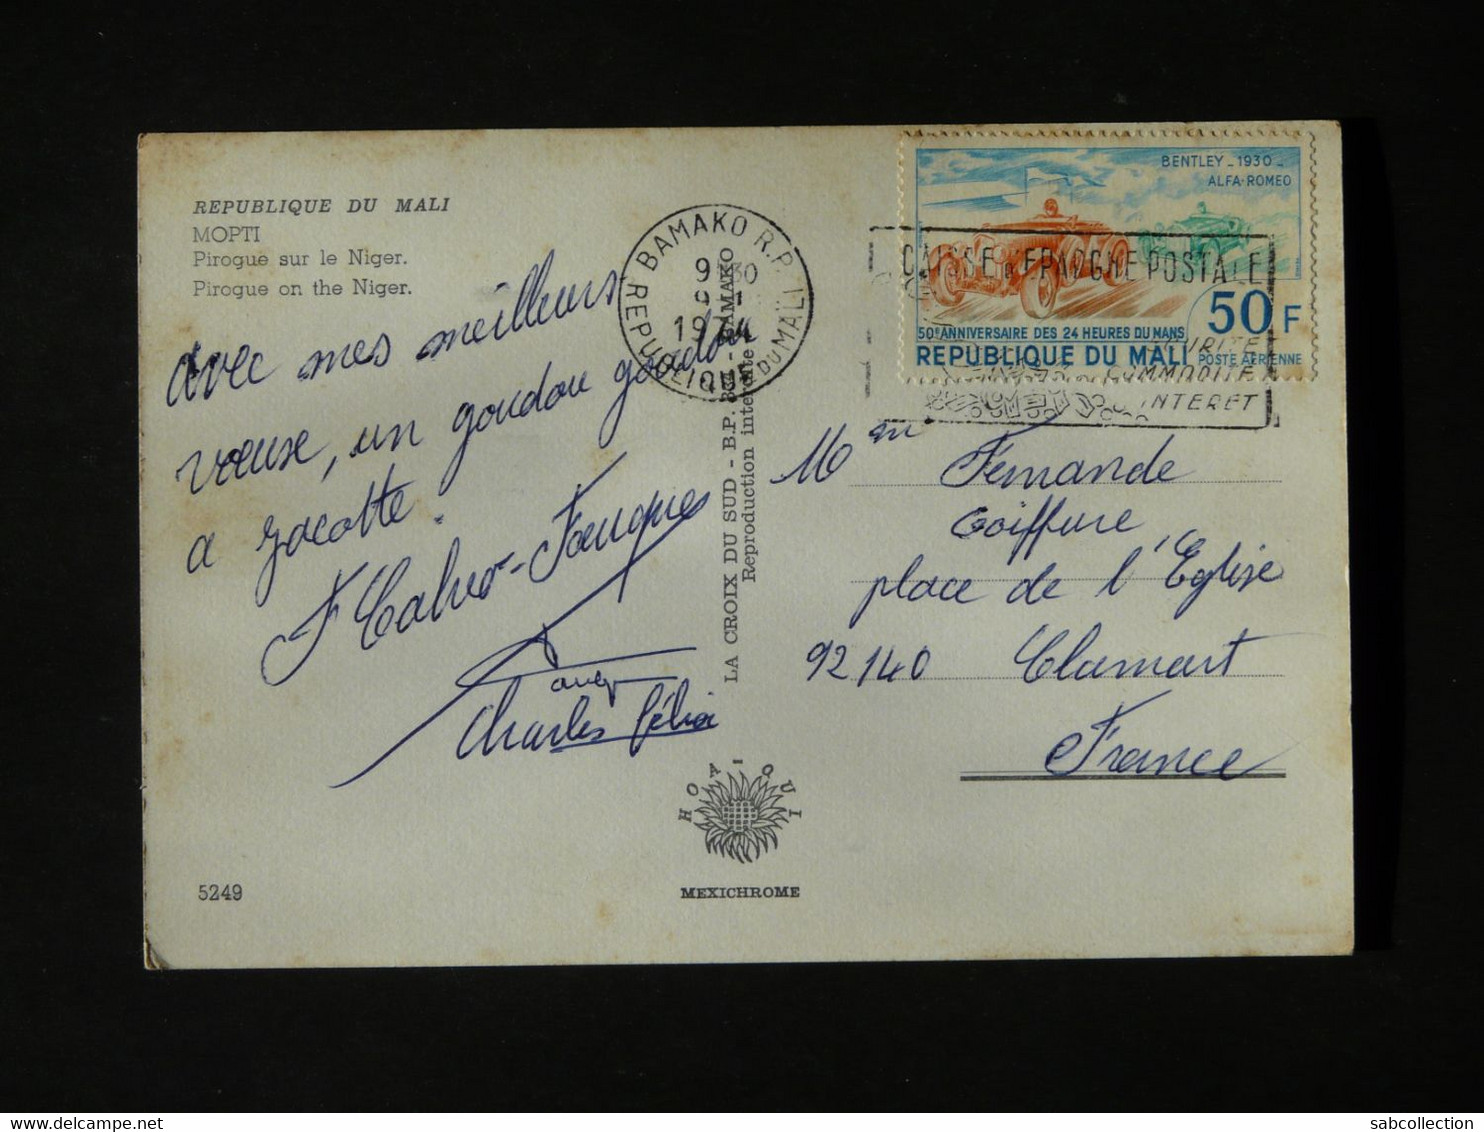 REPUBLIQUE DU MALI
MOPTI
Pirogue sur le Niger.
Pirogue on the Niger.
avec mes meilleurs
vœuse, un goudou goudou
a zacotte.
F Calvo-Fauques
Charles Félix
5249
BAMAKO R.P.
9 30
1974
REPUBLIQUE DU MALI
LA CROIX DU SUD - B.P. - BAMAKO
Reproduction interdite
HOA-QUI
MEXICHROME
BENTLEY - 1930 -
ALFA-ROMEO
CAISSE D'EPARGNE POSTALE
50E ANNIVERSAIRE DES 24 HEURES DU MANS
50 F
REPUBLIQUE DU MALI
POSTE AERIENNE
SECURITE
COMMODITE
INTERET
Mem Fernande
Coiffure
place de l'Eglise
92140 Clamart
France
sabcollection